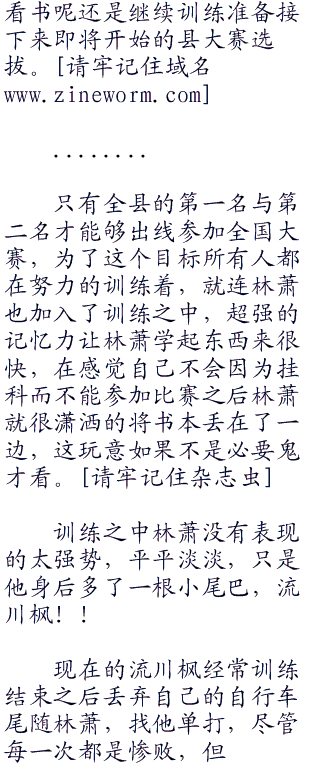 看书呢还是继续训练准备接
下来即将开始的县大赛选
拔。[请牢记住域名
www.zineworm.com]
........
只有全县的第一名与第
二名才能够出线参加全国大
赛，为了这个目标所有人都
在努力的训练着，就连林萧
也加入了训练之中，超强的
记忆力让林萧学起东西来很
快，在感觉自己不会因为挂
科而不能参加比赛之后林萧
就很潇洒的将书本丢在了一
边，这玩意如果不是必要鬼
才看。[请牢记住杂志虫]
训练之中林萧没有表现
的太强势，平平淡淡，只是
他身后多了一根小尾巴，流
川枫！！
现在的流川枫经常训练
结束之后丢弃自己的自行车
尾随林萧，找他单打，尽管
每一次都是惨败，但